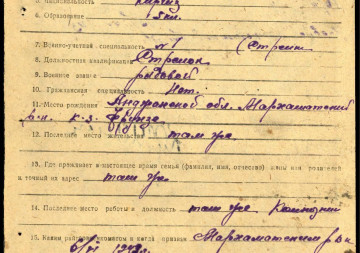 6. Образование 5 кл.
7. Военно-учетная специальность №1 (Стрелк
8. Должностная квалификация Стрелок
9. Военное звание рядовой
10. Гражданская специальность Нет.
11. Место рождения Андижанской обл. Мархаматский
р-н. к-з. Фрунзе
12. Последнее место жительства там же
13. Где проживает в настоящее время семья (фамилия, имя, отчество) жены или родителей
и точный их адрес там же
14. Последнее место работы и должность там же Колхозник
15. Каким райвоенкоматом и когда призван Мархаматским рвк